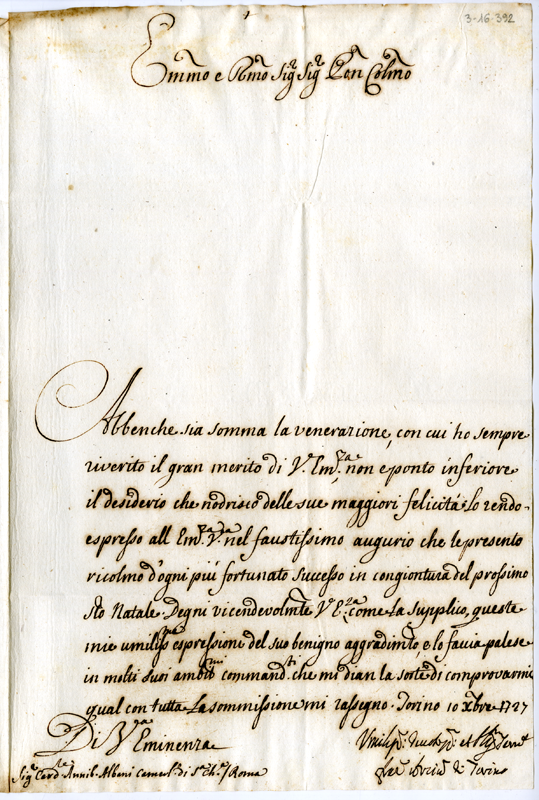 3-16-392
Emmo e Rmo Sigr Sigr Pron Colmo
Abbenche sia somma la venerazione, con cui ho sempre
riverito il gran merito di V. Emza, non e ponto inferiore
il desiderio che nodrisco delle sue maggiori felicitá. Lo rendo
espresso all Emza Vra nel faustissimo augurio che le presento
ricolmo d'ogni piú fortunato successo in congiontura del prossimo
Sto Natale. Degni vicendevolmte V. Eza come La supplico, queste
mie umilissme espressione del suo benigno aggradimto e lo faccia palese
in molti suoi ambitmi commandti che mi dian la sorte di comprovarmi
qual con tutta La sommissione mi rassegno. Torino 10 Xbre 1727
Di Vra Eminenza
Umilip. Devotip. et Servre
Sigr Cardle Annib. Albani Camerlo di Sta Cha / Roma
di Torino